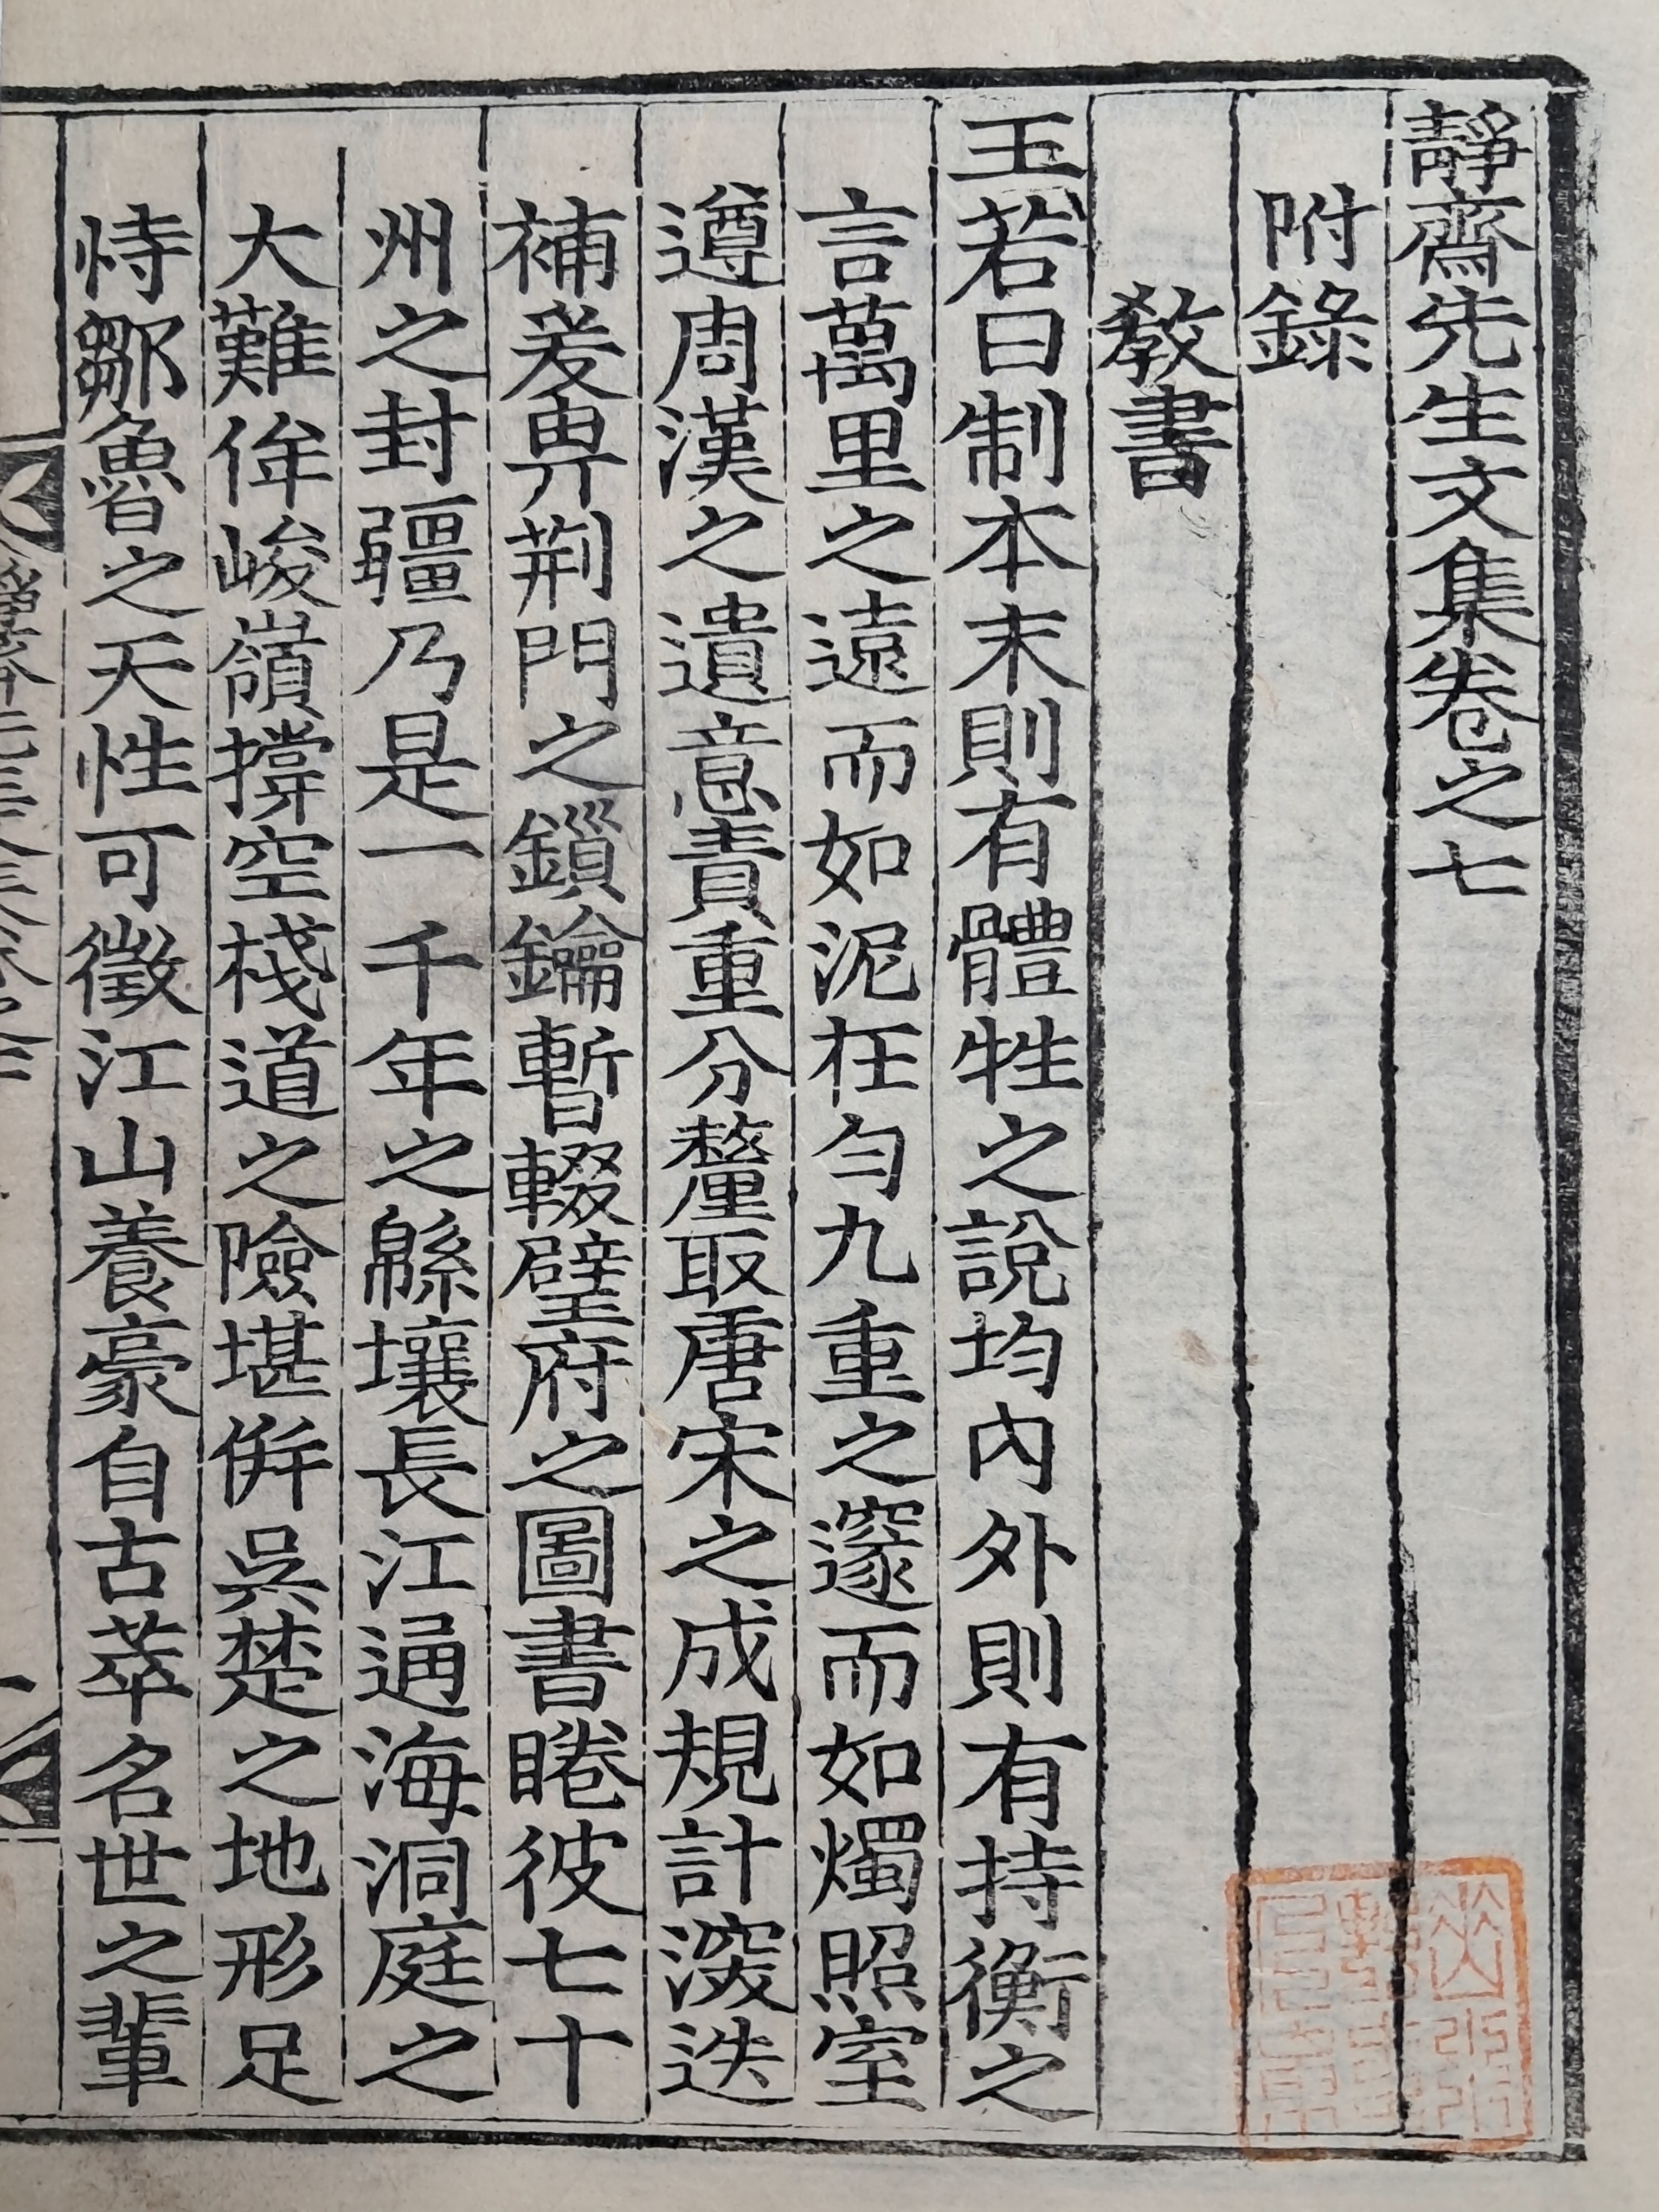 靜齋先生文集卷之七
附錄
教書
王若曰制本末則有體牲之說均內外則有持衡之
言萬里之遠而如泥在勻九重之邃而如燭照室
遵周漢之遺意責重分釐取唐宋之成規計深迭
補爰畀荊門之鎖鑰暫輟璧府之圖書睠彼七十
州之封疆乃是一千年之緜壤長江通海洞庭之
大難侔峻嶺撐空棧道之險堪倂吳楚之地形足
恃鄒魯之天性可徵江山養豪自古萃名世之輩